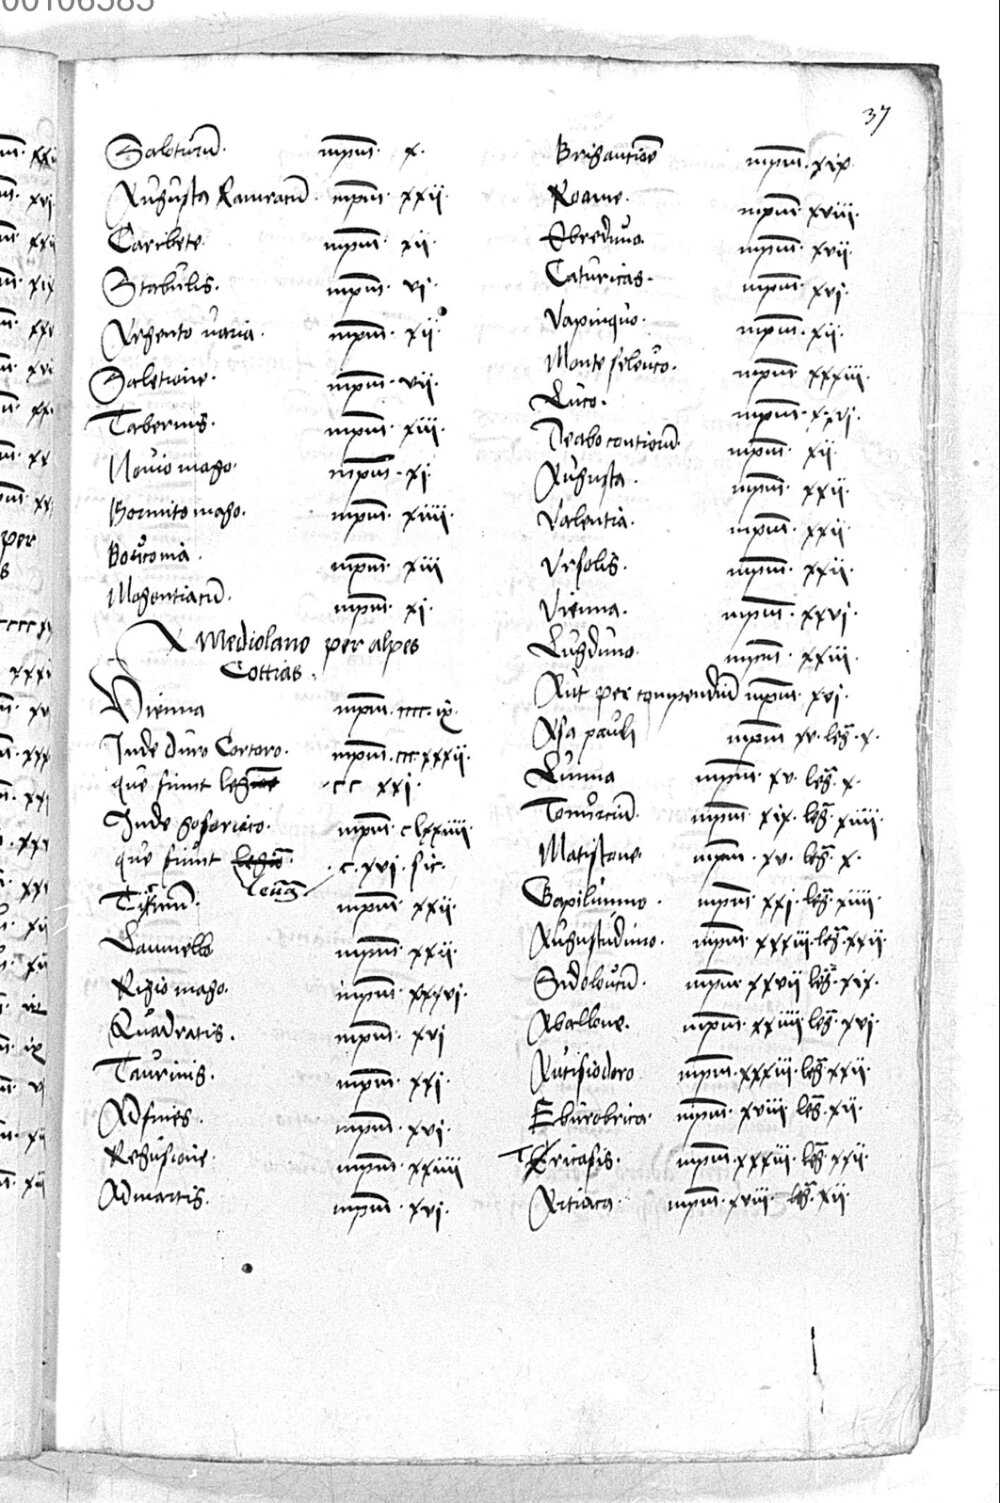 37
Saloturū. mpm̄. x.
Augusta Rauracū. mpm̄. xxii.
Caribete. mpm̄. xii.
Stabulis. mpm̄. vi.
Argento varia. mpm̄. xii.
Saletione. mpm̄. vii.
Tabernis. mpm̄. xiii.
Novio mago. mpm̄. xi.
Bormito mago. mpm̄. xiiii.
Bouconia. mpm̄. xiii
Magontiacū. mpm̄. xi.
A Mediolano per alpes
Cottias.
Vienna mpm̄. cccc. ix.
Inde duro Cortoro. mpm̄. cc. xxxii.
que fiunt leg. cc xxi.
Inde gosoriaco. mpm̄ clxxiiii.
que fiunt legas. c. xvi. sic.
leug.
Ticinū. mpm̄ xxii.
Laumello mpm̄ xxii.
Rigio mago. mpm̄ xxxvi.
Quadratis. mpm̄. xvi
Taurinis. mpm̄. xxi.
Ad fines. mpm̄. xvi.
Segusione. mpm̄. xxiiii
Ad martis. mpm̄. xvi.
Brigantione mpm̄. xix
Rame. mpm̄ xviii.
Ebreduno. mpm̄. xvii.
Caturicas. mpm̄. xvi.
Vapinquo. mpm̄. xii.
Monte seleuco. mpm̄ xxxiii.
Luco. mpm̄. xxvi.
Dea bocontiorū. mpm̄ xii.
Augusta. mpm̄. xxii.
Valentia. mpm̄. xxii.
Ursolis. mpm̄. xxii.
Vienna. mpm̄. xxvi.
Lugduno. mpm̄. xxiii.
Aut per compendiū mpm̄ xvi.
Asa pauli mpm̄ xv. leg. x.
Lunna mpm̄ xv. leg. x.
mpm̄ xix. leg. xiiii.
Matiscone. mpm̄. xv. leg. x.
mpm̄ xxi. leg. xiiii.
Augustuduno. mpm̄ xxxiii. leg. xxii.
Sidoloucū. mpm̄ xxvii leg. xix.
Aballone. mpm̄. xxiiii leg. xvi.
Autisiodero mpm̄. xxxiii. leg. xxii.
Eburobrica. mpm̄. xviii leg. xii.
Tricasis. mpm̄. xxxiii. leg. xxii.
Artiaca mpm̄. xviii leg. xii.